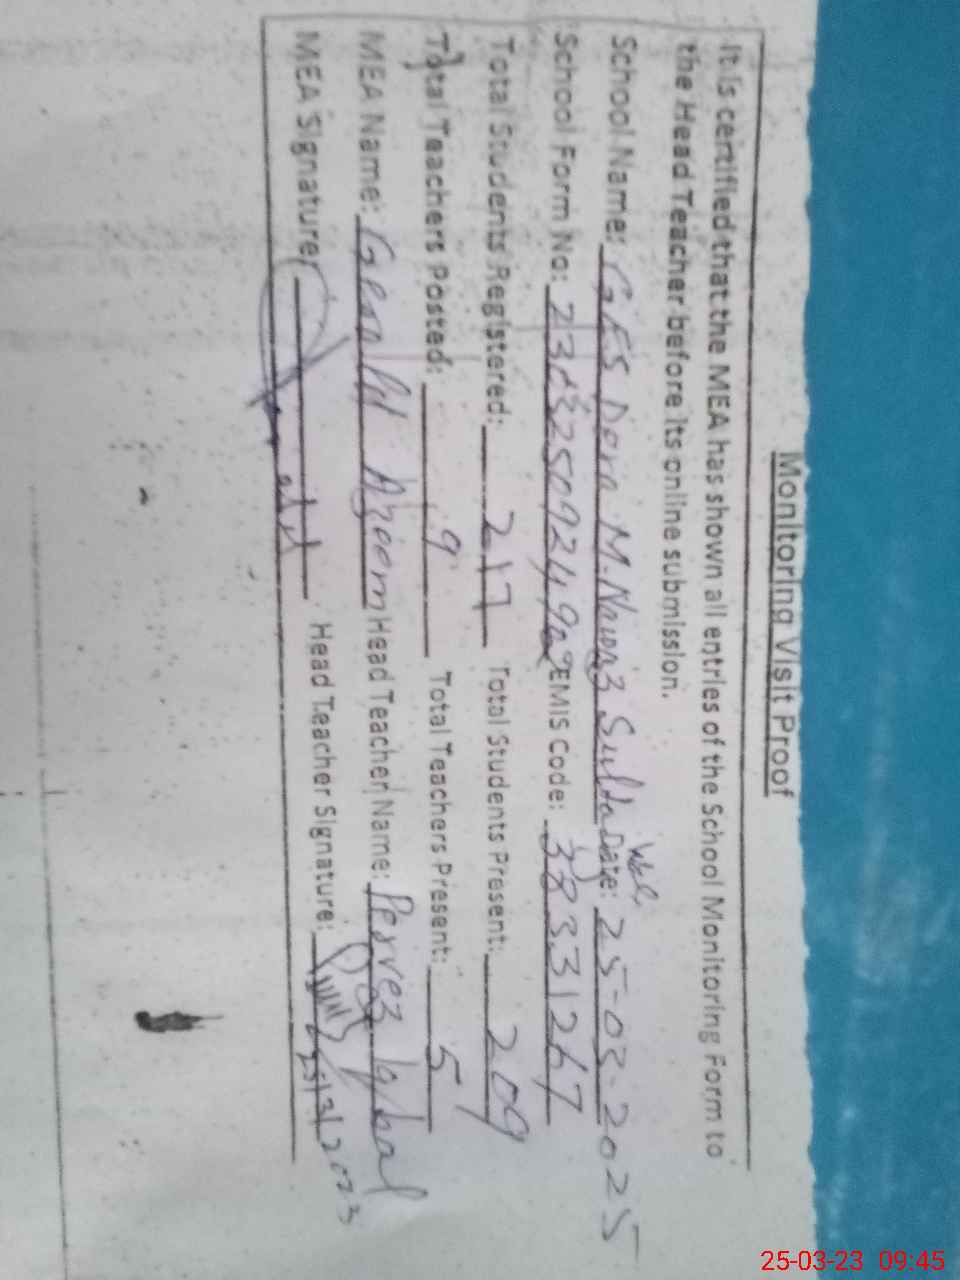 Monitoring Visit Proof
It is certified that the MEA has shown all entries of the School Monitoring Form to
the Head Teacher before its online submission.
School Name: GES Dera M. Nawaz Sultan Wala Date: 25-03-2025
School Form No: EMIS Code: 38331267
Total Students Registered: 217 Total Students Present: 209
Total Teachers Posted: 9 Total Teachers Present: 5
MEA Name: Azeem Head Teacher Name: Pervez Iqbal
MEA Signature: Head Teacher Signature: 25/3/2023
25-03-23 09:45